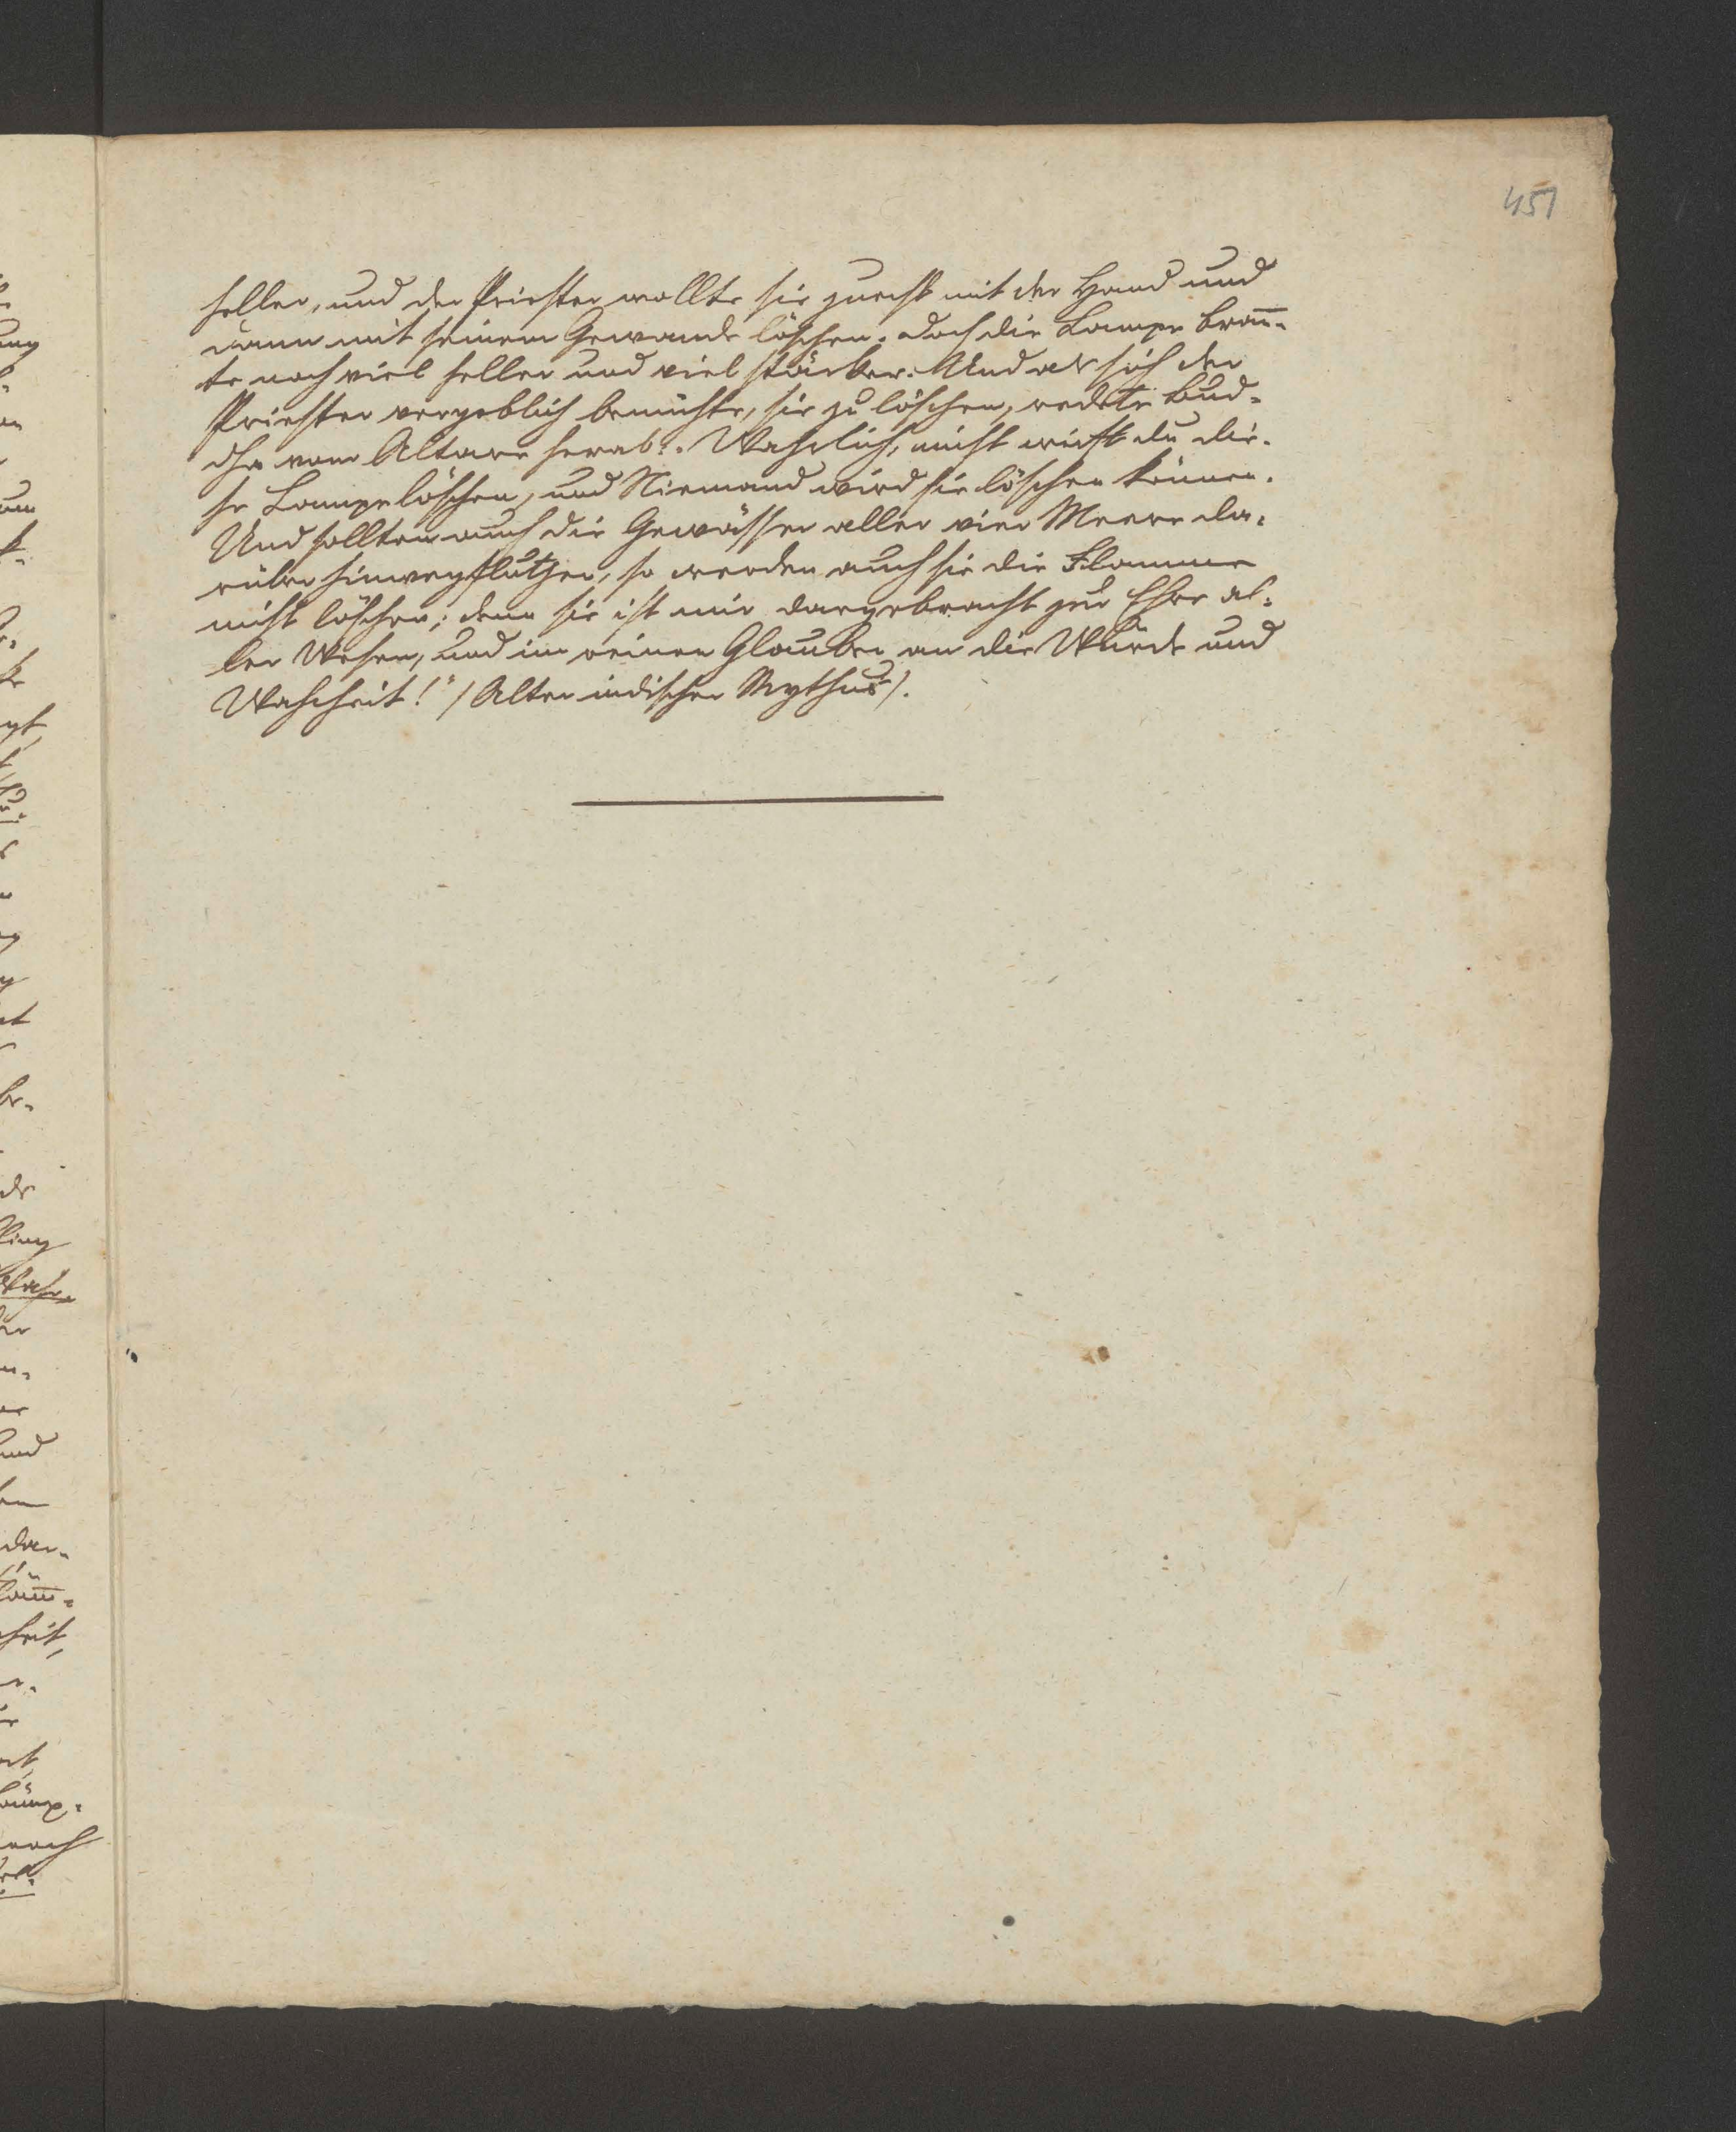 451
heller, und der Priester wollte sie zuerst mit der Hand und
dann mit seinem Gewande löschen. Doch die Lampe bran̄-
te noch viel heller und viel stärker. Und als sich der
Priester vergeblich bemühte, sie zu löschen, redete Bud-
dha vom Altare herab: „Wahrlich, nicht wirst du die-
se Lampe löschen, und Niemand wird sie löschen können.
Und sollten auch die Gewässer aller vier Meere da-
rüber hinwegfluthen, so werden auch sie die Flamme
nicht löschen; denn sie ist mir dargebracht zur Ehre al-
ler Wesen, und im reinen Glauben an die Würde und
Wahrheit!“ /Alter indischer Mythus/.